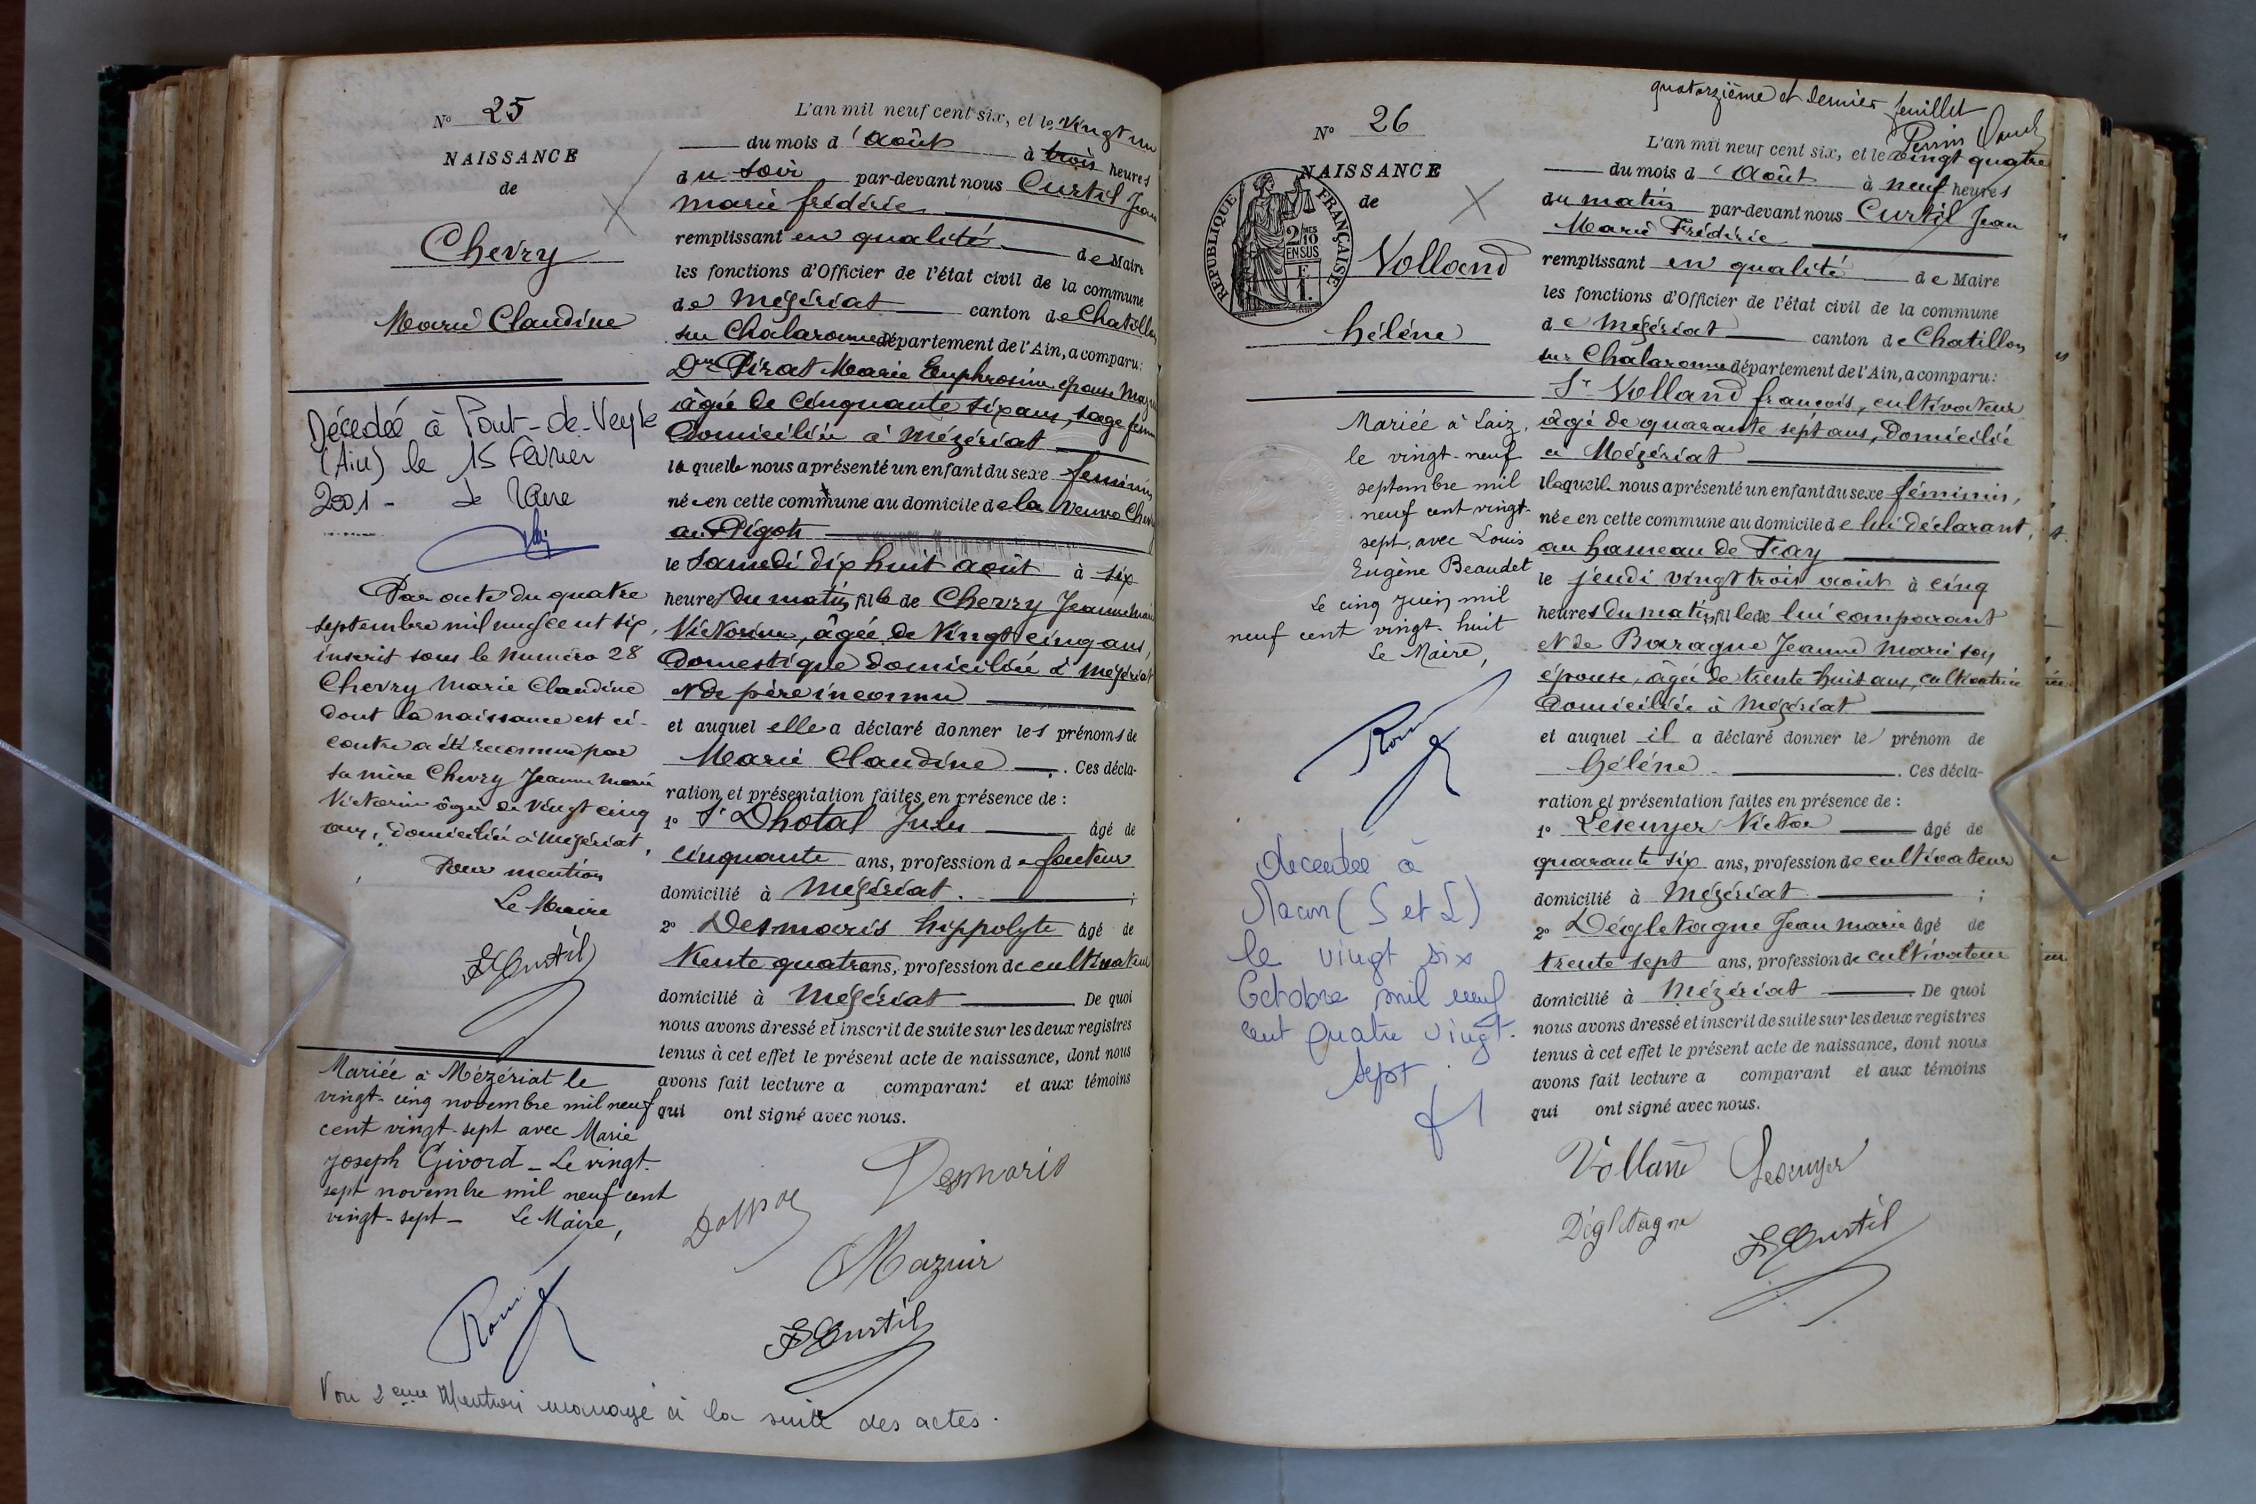 N° 25
NAISSANCE
de
Chevry
Marie Claudine
Décedéé à Pont-de-Veyle
(Ain) le 15 Février
2001 - Le Maire
Par acte du quatre
septembre mil neuf cent six,
inscrit sous le numéro 28
Chevry Marie Claudine
dont la naissance est ci-
contre a été reconnue par
sa mère Chevry Jeanne Marie
Victorine âgée de vingt cinq
ans, domiciliée à Mézériat,
Pour mention
Le Maire
F Curtil
Mariée à Mézériat le
vingt-cinq novembre mil neuf
cent vingt-sept avec Marie
Joseph Givord _ Le vingt-
sept novembre mil neuf cent
vingt-sept _ Le Maire,
L'an mil neuf cent six, et le vingt un
du mois d'Août à trois heures
du soir par-devant nous Curtil Jean
marie frédéric
remplissant en qualité de Maire
les fonctions d'Officier de l'état civil de la commune
de Mézériat canton de Chatillon
sur Chalaronne département de l'Ain, a comparu:
Dme Pirat Marie Euphrosine, épouse
âgée de cinquante six ans, sage femme
domiciliée à Mézériat
laquelle nous a présenté un enfant du sexe féminin
née en cette commune au domicile de la veuve
au Pigot
le samedi dix huit août à six
heures du matin, fille de Chevry Jeanne Marie
Victorine, âgée de vingt cinq ans,
Domestique domiciliée à Mézériat
et de père inconnu
et auquel elle a déclaré donner les prénoms de
Marie Claudine . Ces décla-
ration et présentation faites en présence de :
1° Sr Dhotal Jules âgé de
cinquante ans, profession de facteur
domicilié à Mézériat ;
2° Desmaris hippolyte âgé de
trente quatre ans, profession de cultivateur
domicilié à Mézériat De quoi
nous avons dressé et inscrit de suite sur les deux registres
tenus à cet effet le présent acte de naissance, dont nous
avons fait lecture a comparant et aux témoins
qui ont signé avec nous.
Desmaris
Mazuir
F Curtil
Voir 2eme Mention mariage à la suite des actes.
quatorzième et dernier feuillet
N° 26
NAISSANCE
de
Volland
hélène
RÉPUBLIQUE FRANÇAISE
2/10 EN SUS
Mariée à Laiz,
le vingt-neuf
septembre mil
neuf cent vingt-
sept, avec Louis
Eugène Beaudet
Le cinq juin mil
neuf cent vingt-huit
Le Maire,
décédée à
Macon (S et L)
le vingt six
Octobre mil neuf
cent quatre vingt-
sept.
L'an mil neuf cent six, et le vingt quatre
du mois d'Août à neuf heures
du matin par-devant nous Curtil Jean
Marie Frédéric
remplissant en qualité de Maire
les fonctions d'Officier de l'état civil de la commune
de Mézériat canton de Chatillon
sur Chalaronne département de l'Ain, a comparu:
Sr Volland françois, cultivateur
âgé de quarante sept ans, domicilié
à Mézériat
lequel nous a présenté un enfant du sexe féminin,
née en cette commune au domicile de lui déclarant,
au hameau de Fay
le jeudi vingt trois août à cinq
heures du matin, fille de lui comparant
et de Barague Jeanne Marie son
épouse, âgée de trente huit ans, cultivatrice
domiciliée à Mézériat
et auquel il a déclaré donner le prénom de
hélène . Ces décla-
ration et présentation faites en présence de :
1° Lescuyer Victor âgé de
quarante six ans, profession de cultivateur
domicilié à Mézériat ;
2° Dégletagne Jean marie âgé de
trente sept ans, profession de cultivateur
domicilié à Mézériat . De quoi
nous avons dressé et inscrit de suite sur les deux registres
tenus à cet effet le présent acte de naissance, dont nous
avons fait lecture a comparant et aux témoins
qui ont signé avec nous.
Volland Lescuyer
Dégletagne F Curtil